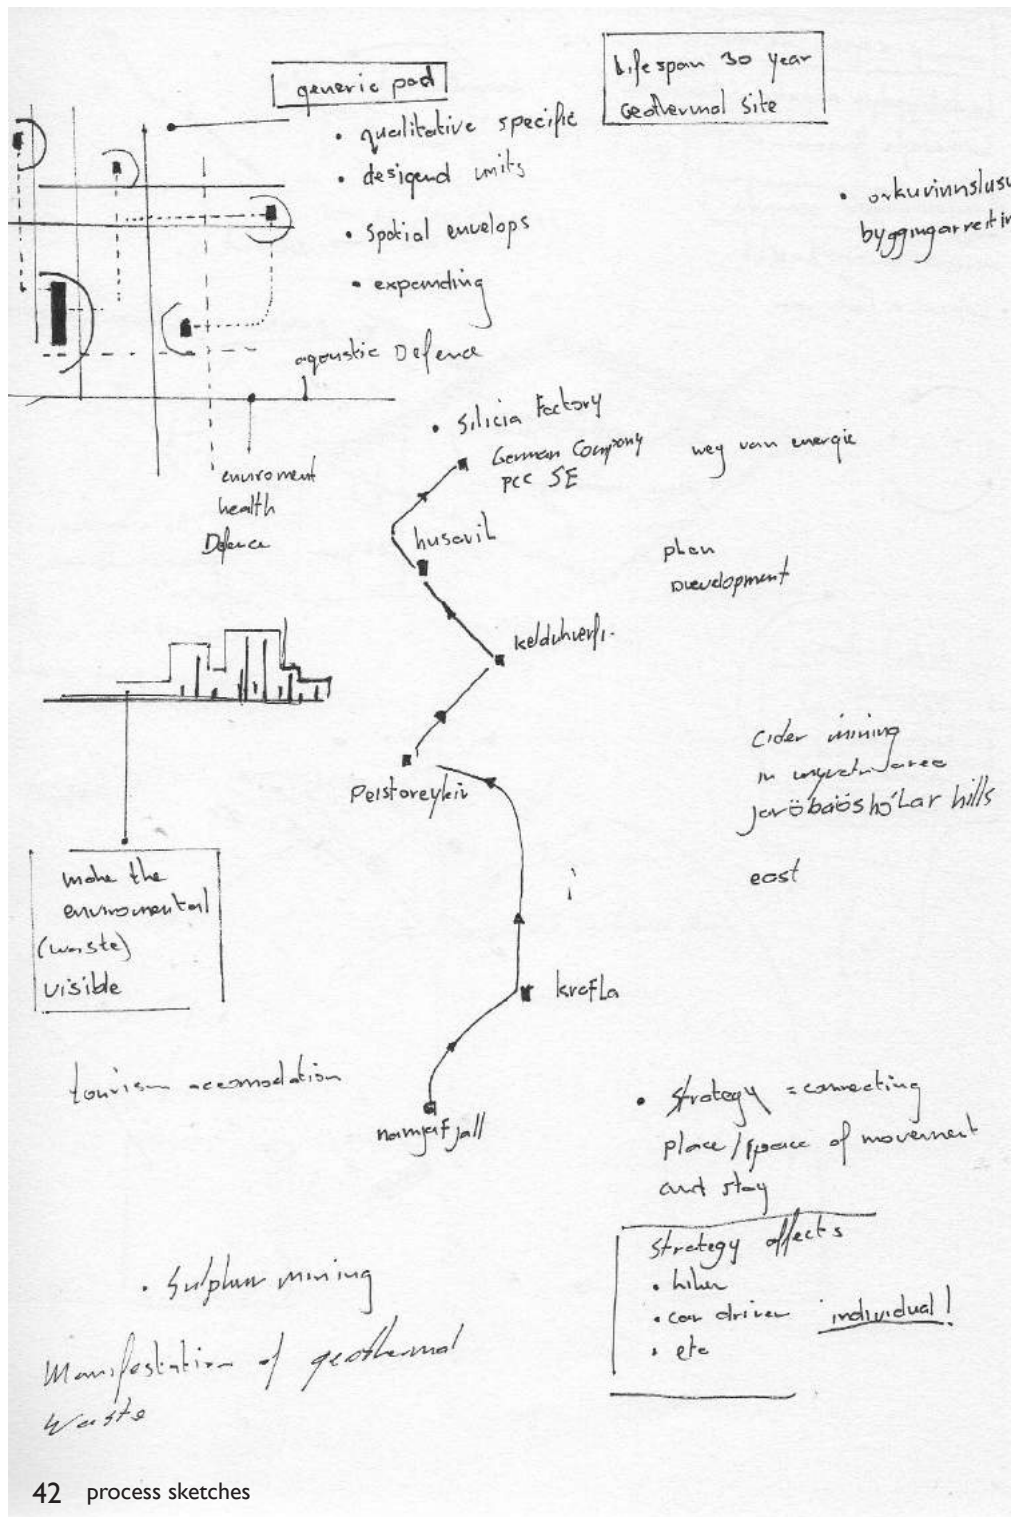 Lifespan 30 year
Geothermal Site
generic pad
• qualitative specific
• desigend units
• spatial envelops
• expanding
• orkuvinnslusv
byggingarreitir
agoustic Defence
enviroment
health
Defence
• Silicia Factory
German Company
PCC SE
weg van energie
husavik
plan
Development
kelduhverfi.
Peistoreykir
Cider mining
in myvatn area
jaröbaöshólar hills
east
make the
enviromental
(waste)
visible
i
krafla
tourism accomodation
namjafjall
• Strategy = connecting
place/space of movement
and stay
Strategy affects
• hiker
• car driver individual!
• etc
• Sulphur mining
Manifestation of geothermal
Waste
42 process sketches